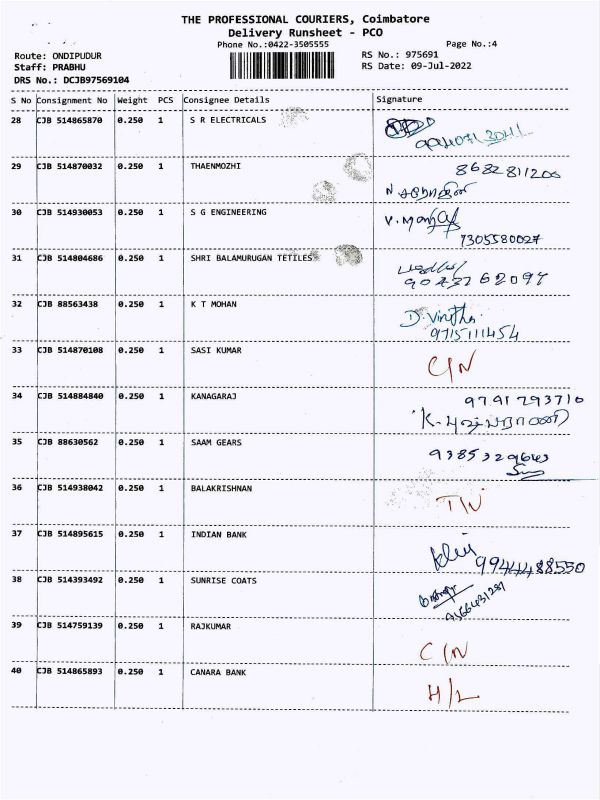 THE PROFESSIONAL COURIERS, Coimbatore
Delivery Runsheet - PCO
Phone No.:0422-3505555 Page No.:4
Route: ONDIPUDUR RS No.: 975691
Staff: PRABHU RS Date: 09-Jul-2022
DRS No.: DCJB97569104
S No Consignment No Weight PCS Consignee Details Signature
28 CJB 514865870 0.250 1 S R ELECTRICALS
29 CJB 514870032 0.250 1 THAENMOZHI 8682811200
30 CJB 514930053 0.250 1 S G ENGINEERING
7305580027
31 CJB 514804686 0.250 1 SHRI BALAMURUGAN TETILES
32 CJB 88563438 0.250 1 K T MOHAN
9715111454
33 CJB 514870108 0.250 1 SASI KUMAR C/N
34 CJB 514884840 0.250 1 KANAGARAJ 9791793710
35 CJB 88630562 0.250 1 SAAM GEARS
36 CJB 514938042 0.250 1 BALAKRISHNAN
37 CJB 514895615 0.250 1 INDIAN BANK
9944488550
38 CJB 514393492 0.250 1 SUNRISE COATS
39 CJB 514759139 0.250 1 RAJKUMAR C/N
40 CJB 514865893 0.250 1 CANARA BANK H/L